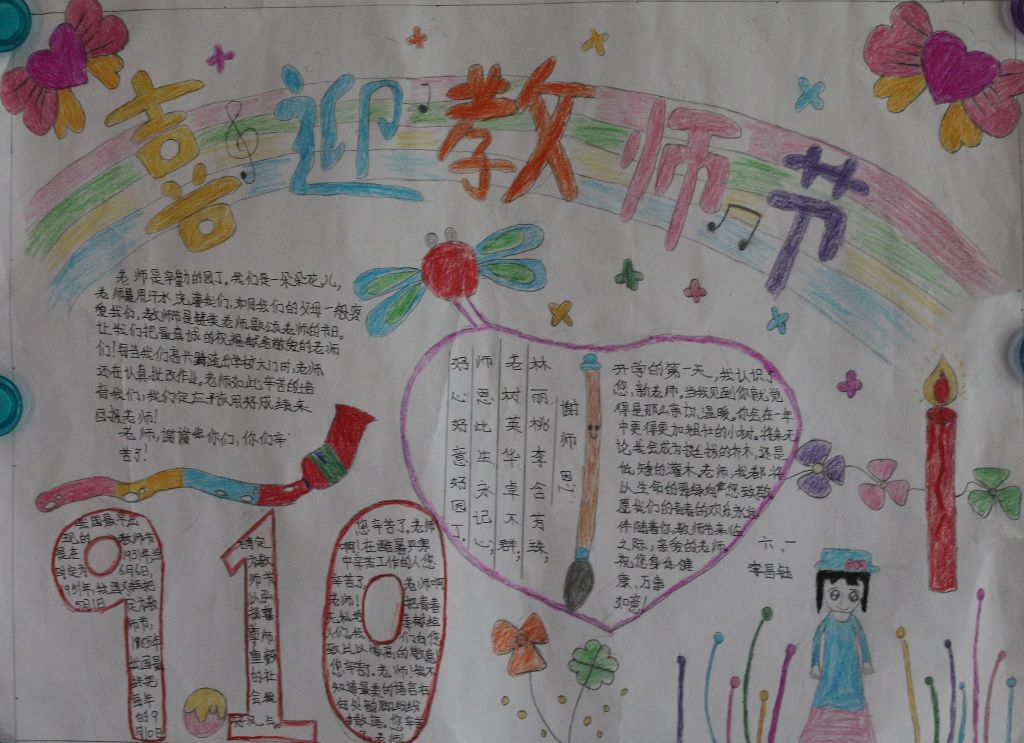 喜迎教师节
老师是辛勤的园丁。我们是一朵朵花儿,
老师是用汗水浇灌我们,本同我们的父母一般疼
爱我们,教师节是赞美老师,歌颂老师的节日。
让我们把最真诚的祝福献给敬爱的老师
们!每当我们高兴踏进学校大门时,老师
还在认真批改作业。老师如此辛苦的培
育我们;我们定应才该用好成绩来
回报老师!
老师,谢谢你们,你们辛
苦了!
谢师恩
林丽桃李含芳珠,
老树英华卓不群,
师恩此生永记心,
好心好意好园丁。
开学的第一天,我认识了
您,新老师。当我见到你就觉
得是那么亲切、温暖。你会在一年
中更得更加粗壮的小树。将来无
论是会成为挺拔的乔木,还是
低矮的灌木。老师,我都将
以生命的翠绿向您致敬
愿我们的青春的欢乐永远
伴随着你。教师节来临
之际,亲爱的老师
祝您身体健
康,万事
如意!
六、一
李昌钰
我国最早出
现的教师节
是在1931年当
时定为6月6日,
师节,
我国是
的9
月10日
确定
为教
师节
尊师
重教
的社
会
您辛苦了。老师
啊!在酷暑严寒
中辛苦工作的人您
辛苦了。老师啊
老师!把青春
您辛苦了。老师!我不
知道最美的语言在